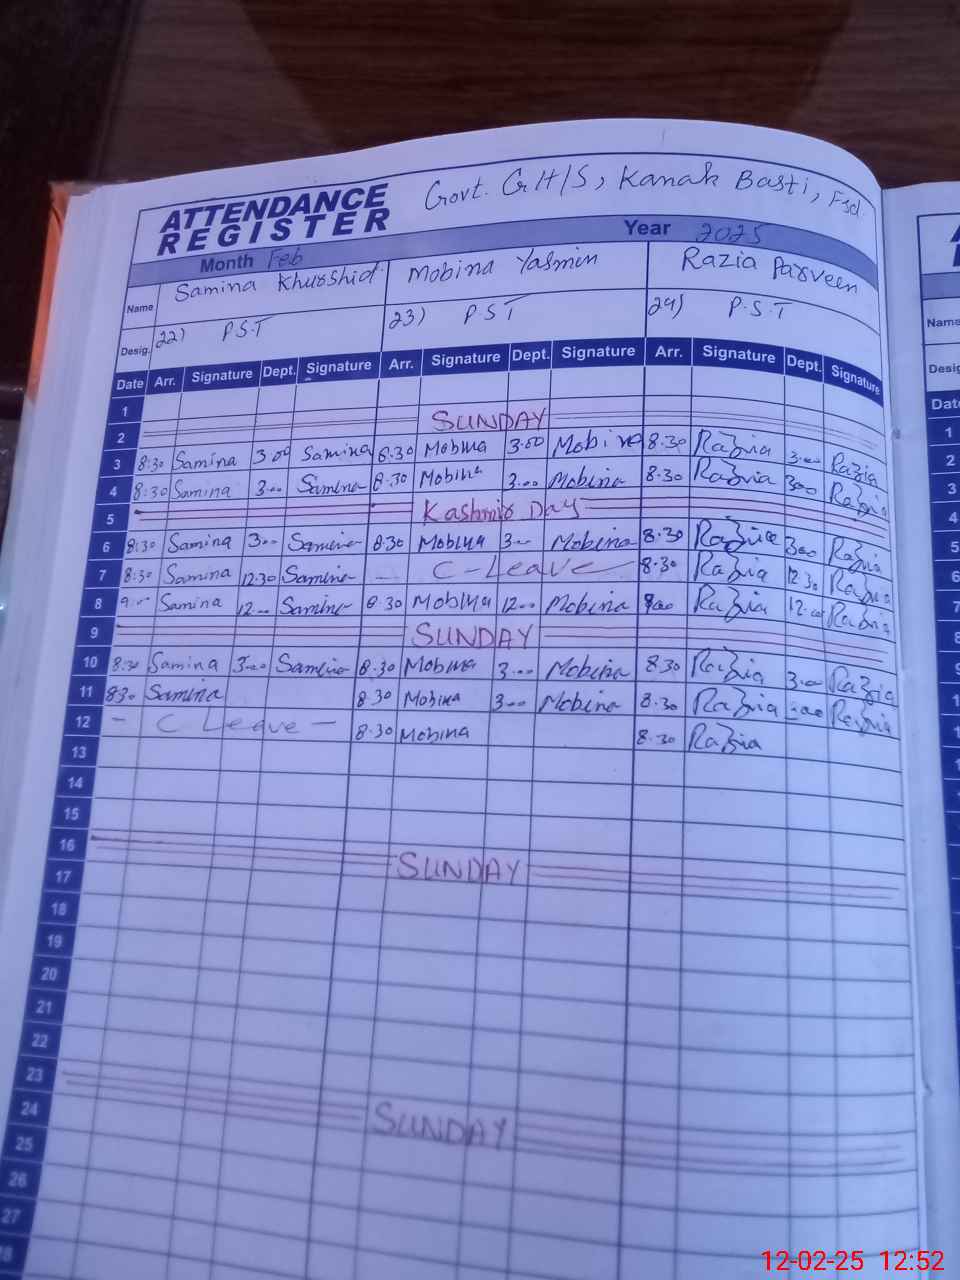 ATTENDANCE REGISTER Govt. G.H/S, Kanak Basti, Fsd.
Month Feb Year 2025
Name Samina Khurshid Mobina Yasmin Razia Parveen
Desig. 22) P.S.T 23) P.S.T 24) P.S.T
Date Arr. Signature Dept. Signature Arr. Signature Dept. Signature Arr. Signature Dept. Signature
1
2 SUNDAY
3 8:30 Samina 3.00 Samina 8.30 Mobina 3.00 Mobina 8.30 Razia 3.00 Razia
4 8:30 Samina 3.00 Samina 8.30 Mobina 3.00 Mobina 8.30 Razia 3.00 Razia
5 Kashmir Day
6 8:30 Samina 3.00 Samina 8.30 Mobina 3.00 Mobina 8.30 Razia 3.00 Razia
7 8:30 Samina 12.30 Samina - C-Leave 8.30 Razia 12.30 Razia
8 9.00 Samina 12.00 Samina 8.30 Mobina 12.00 Mobina 9.00 Razia 12.00 Razia
9 SUNDAY
10 8:30 Samina 3.00 Samina 8.30 Mobina 3.00 Mobina 8.30 Razia 3.00 Razia
11 8:30 Samina 8.30 Mobina 3.00 Mobina 8.30 Razia 3.00 Razia
12 - C Leave - 8.30 Mobina 8.30 Razia
13
14
15
16 SUNDAY
17
18
19
20
21
22
23 SUNDAY
24
25
26
27
28
Name
Desig
Date
1
2
3
4
5
6
7
8
12-02-25 12:52